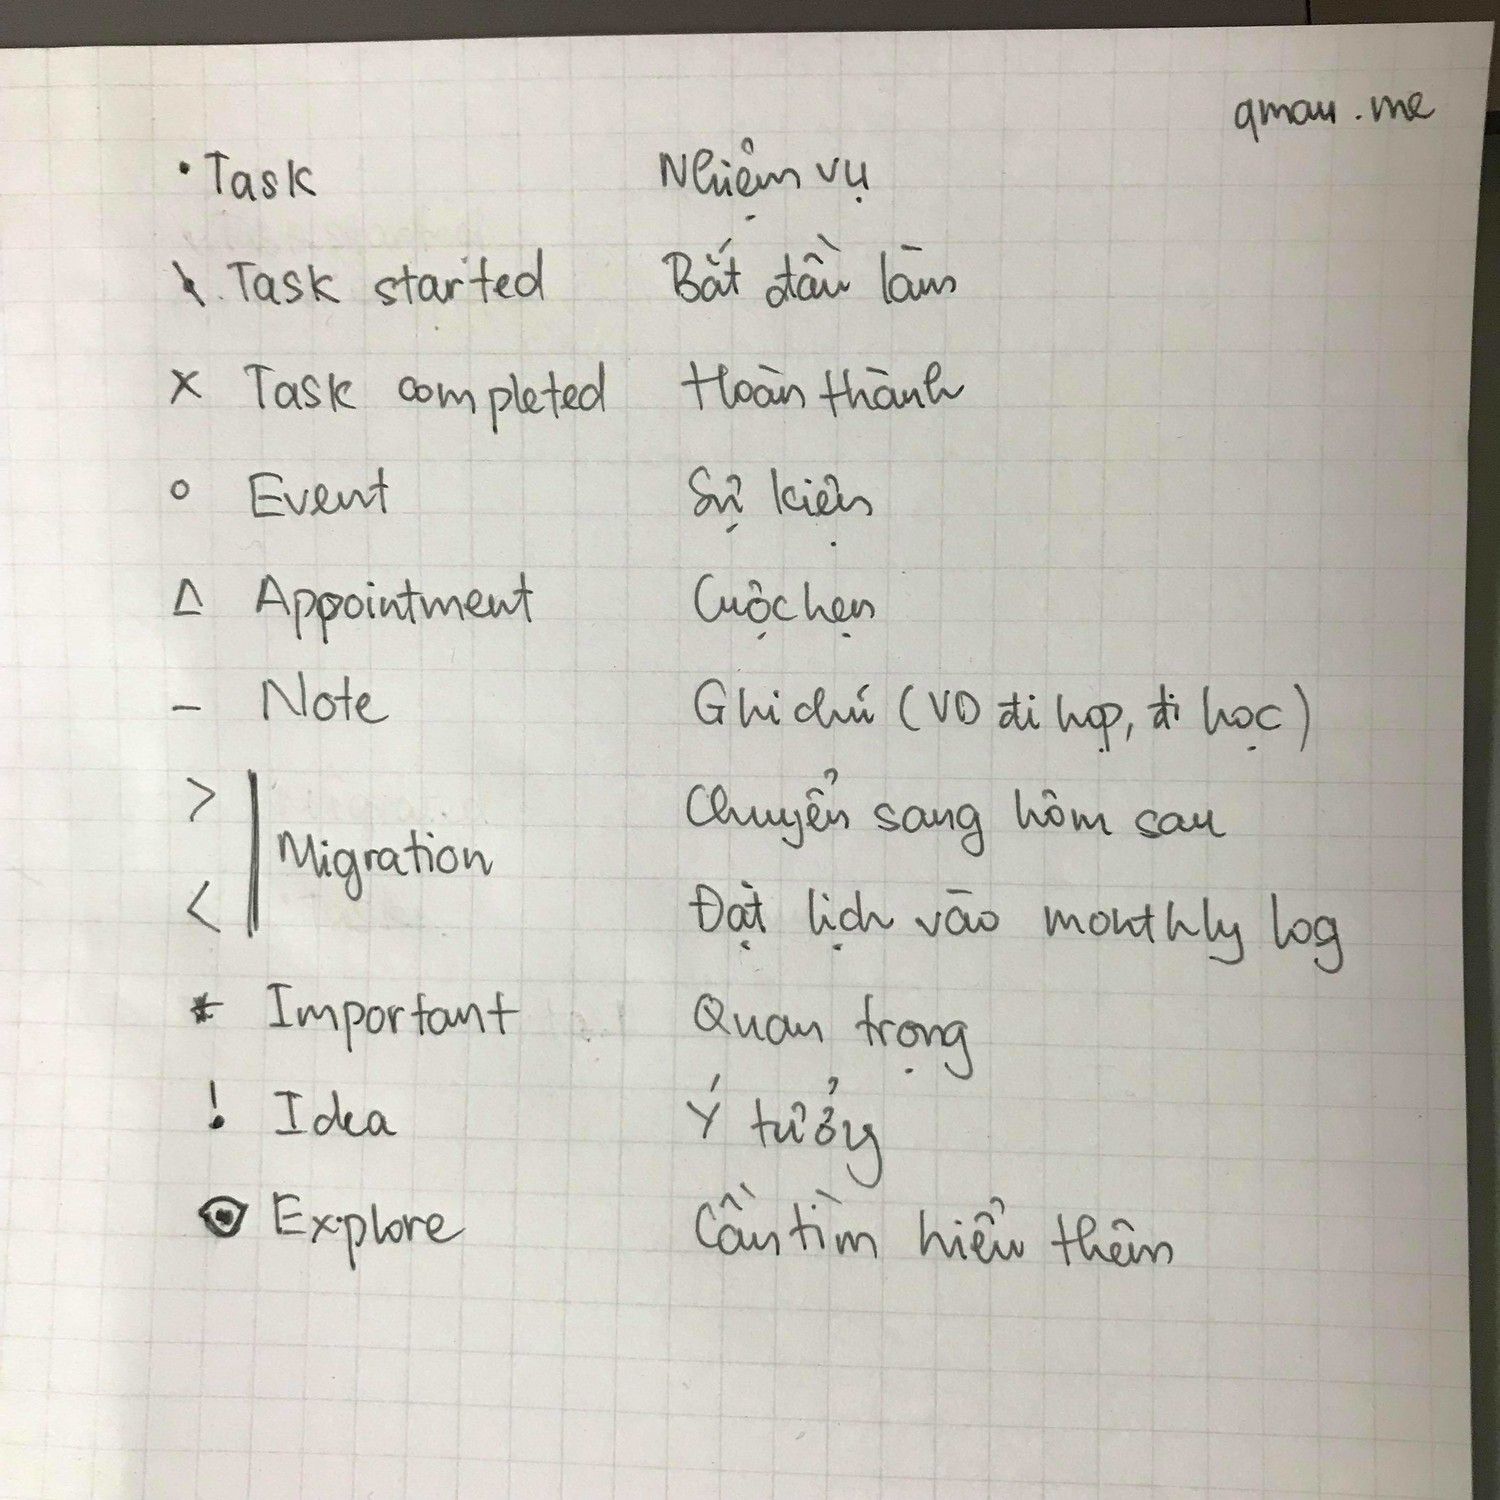 qmau.me
• Task Nhiệm vụ
\ Task started Bắt đầu làm
x Task completed Hoàn thành
o Event Sự kiện
Δ Appointment Cuộc hẹn
– Note Ghi chú (VD đi họp, đi học)
> Chuyển sang hôm sau
Migration
< Đặt lịch vào monthly log
* Important Quan trọng
! Idea Ý tưởng
Explore Cần tìm hiểu thêm